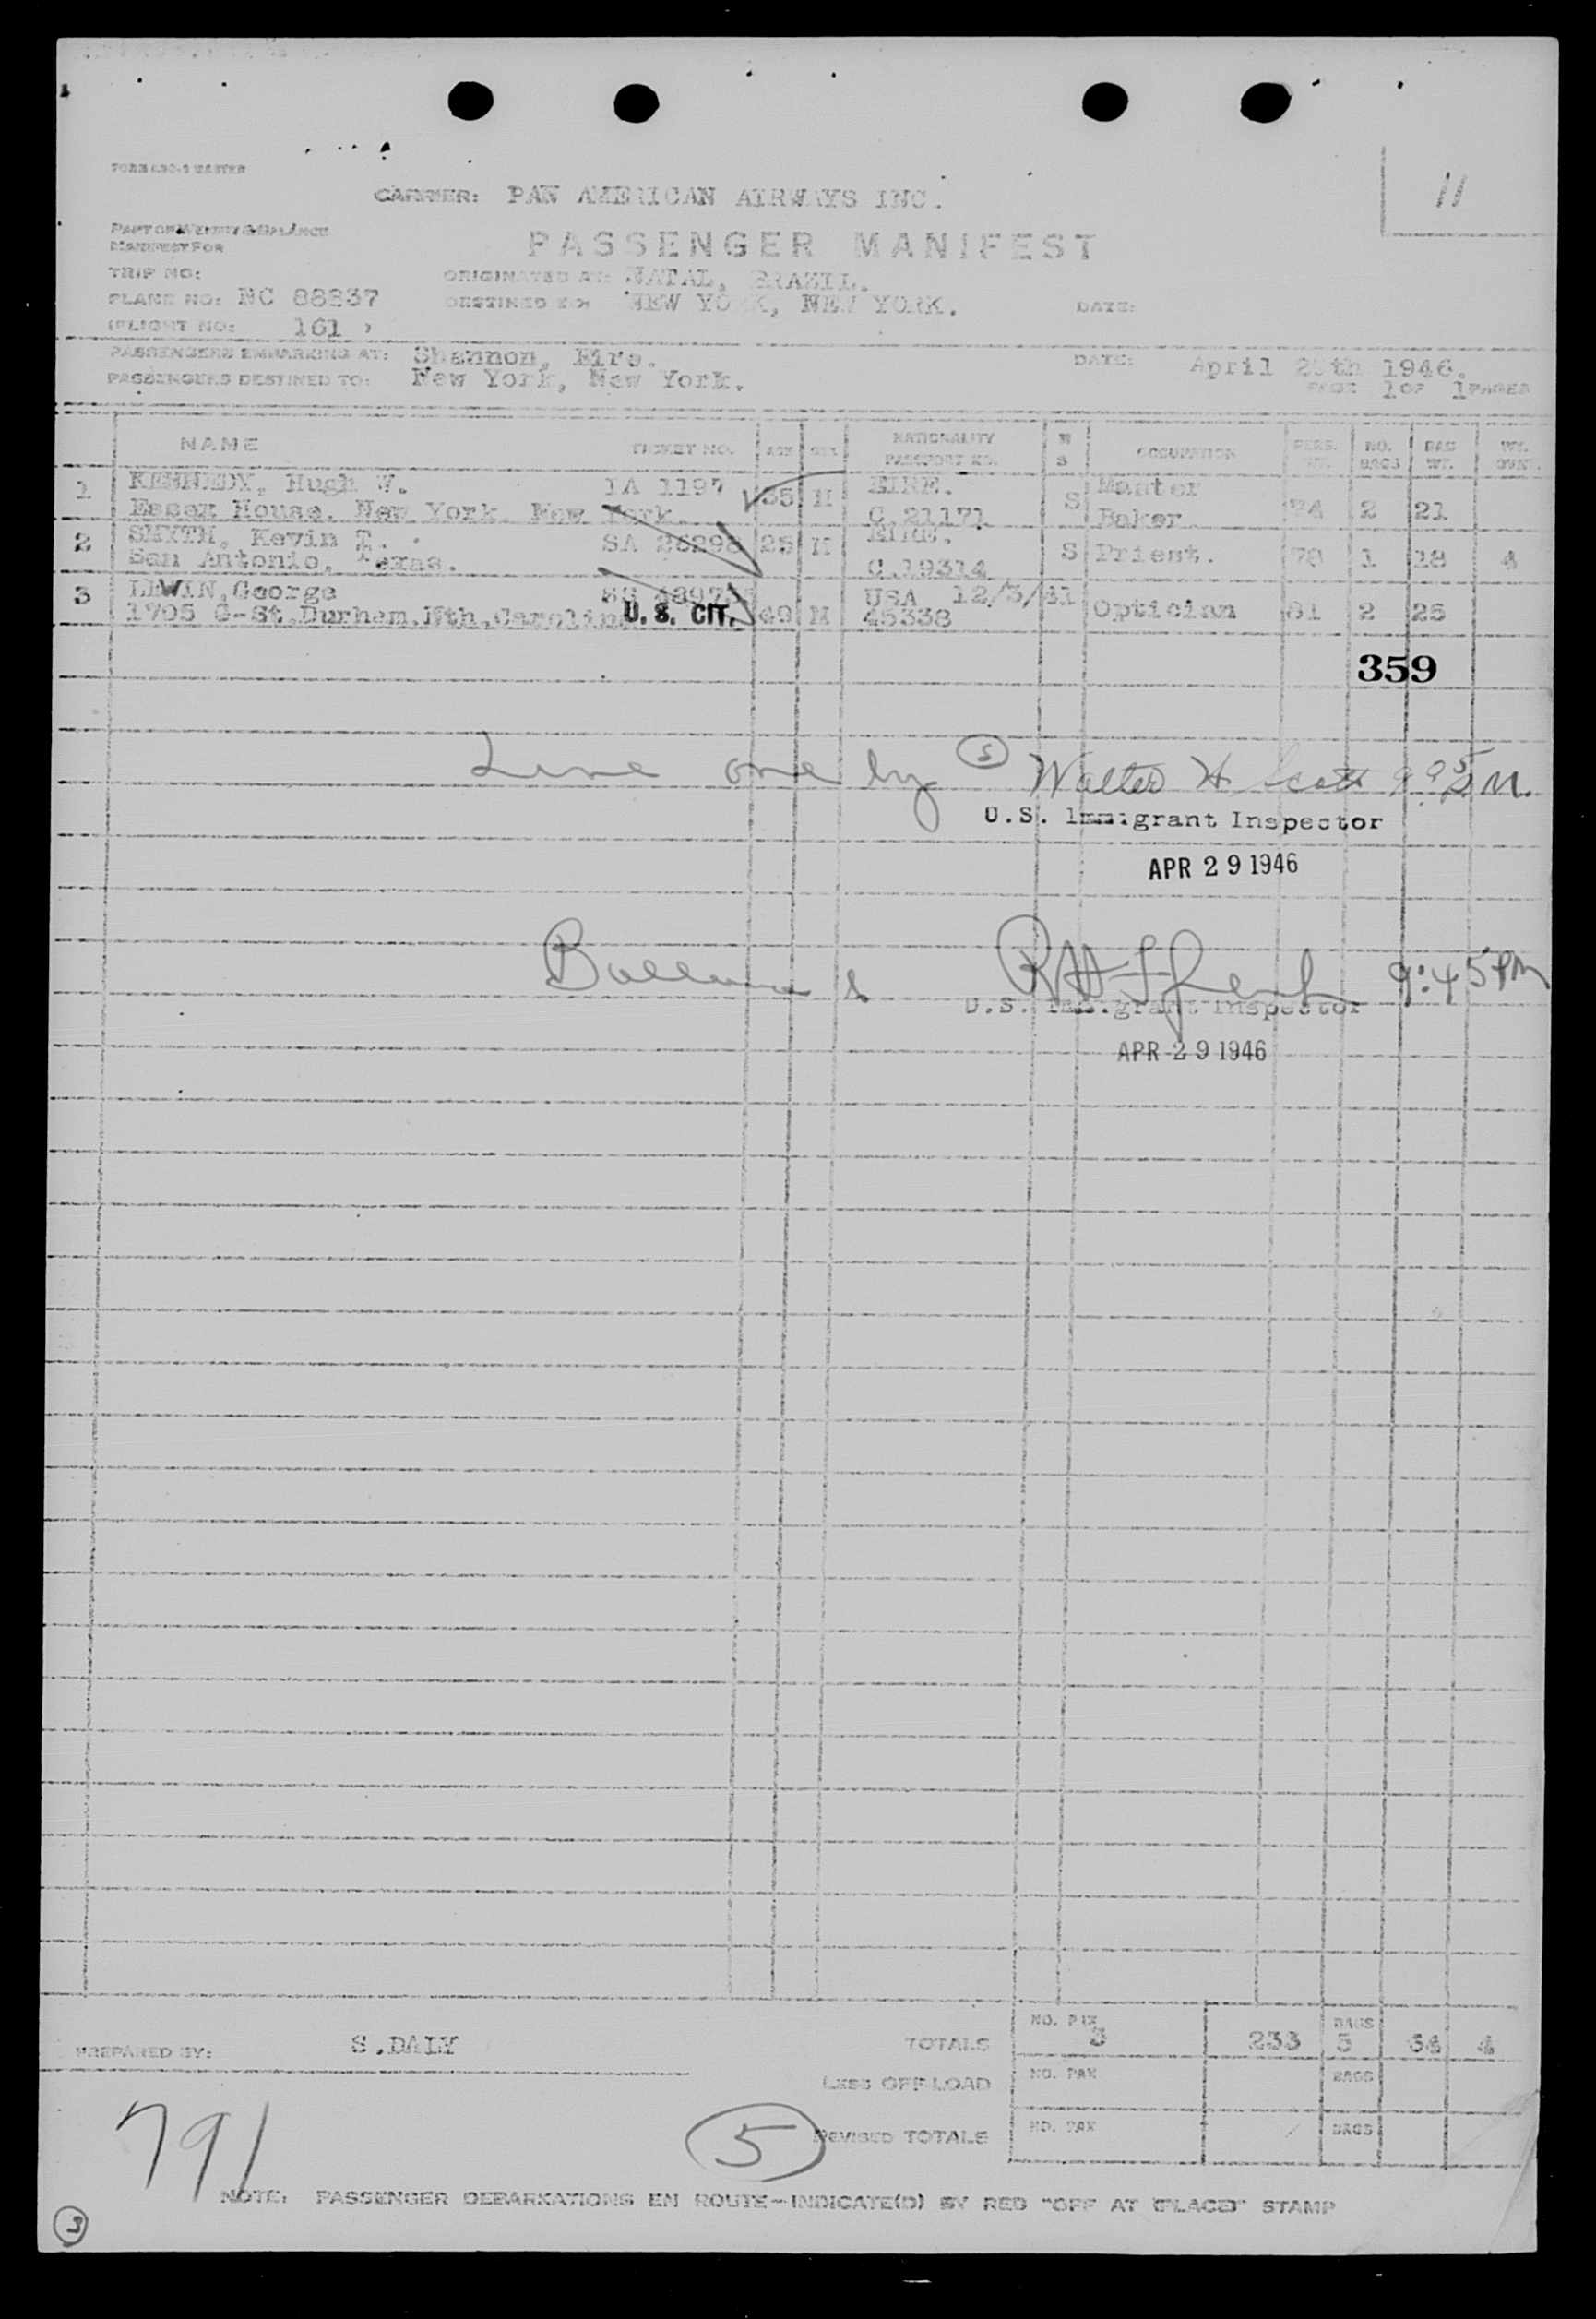 11
CARRIER: PAN AMERICAN AIRWAYS INC.
PART OF WEIGHT & BALANCE
MANIFEST FOR
PASSENGER MANIFEST
TRIP NO: ORIGINATED AT: NATAL, BRAZIL.
PLANE NO: NC 88837 DESTINED FOR NEW YORK, NEW YORK. DATE:
FLIGHT NO: 161
PASSENGERS EMBARKING AT: Shannon, Eire. DATE: April 1946.
PASSENGERS DESTINED TO: New York, New York. PAGE 1 OF 1 PAGES
NAME TICKET NO. AGE SEX NATIONALITY PASSPORT NO. M S OCCUPATION PERS. WT. NO. BAGS BAG WT. WT. OVER.
1 KENNEDY, Hugh W. IA 1197 35 M EIRE. S Master 74 2 21
Essex House. New York. New York. C.21171 Baker
2 SMITH, Kevin T. SA 26298 25 M EIRE. S Priest. 78 1 18 4
San Antonio, Texas. C.19314
3 LEWIN,George USA 12/3/41 Optician 81 2 25
1705 G-St.Durham.Nth.Carolina U.S. CIT. 49 M 45338
359
Line one by (5) Walter H Scott 9 05 P.M.
U.S. Immigrant Inspector
APR 29 1946
9:45 PM
U.S. Immigrant Inspector
APR 29 1946
PREPARED BY: S.DALY TOTALS NO. PAX 3 233 BAGS 5 64 4
LESS OFF-LOAD NO. PAX BAGS
REVISED TOTALS NO. PAX BAGS
791
5
NOTE: PASSENGER DEBARKATIONS EN ROUTE-INDICATE(D) BY RED "OFF AT (PLACE)" STAMP
3